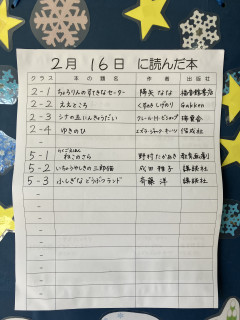 2月 16日 に読んだ本
クラス 本の題名 作者 出版社
2-1 ちょろりんのすてきなセーター 降矢 なな 福音館書店
2-2 ええところ くすのき しげのり Gakken
2-3 シナの五にんきょうだい クレール・H・ビショップ 瑞雲舎
2-4 ゆきのひ エズラ・ジャック・キーツ 偕成社
らくごえほん
5-1 ねこのさら 野村たかあき 教育画劇
5-2 いちょうやしきの三郎猫 成田 雅子 講談社
5-3 ふしぎなどうぶつランド 斉藤 洋 講談社